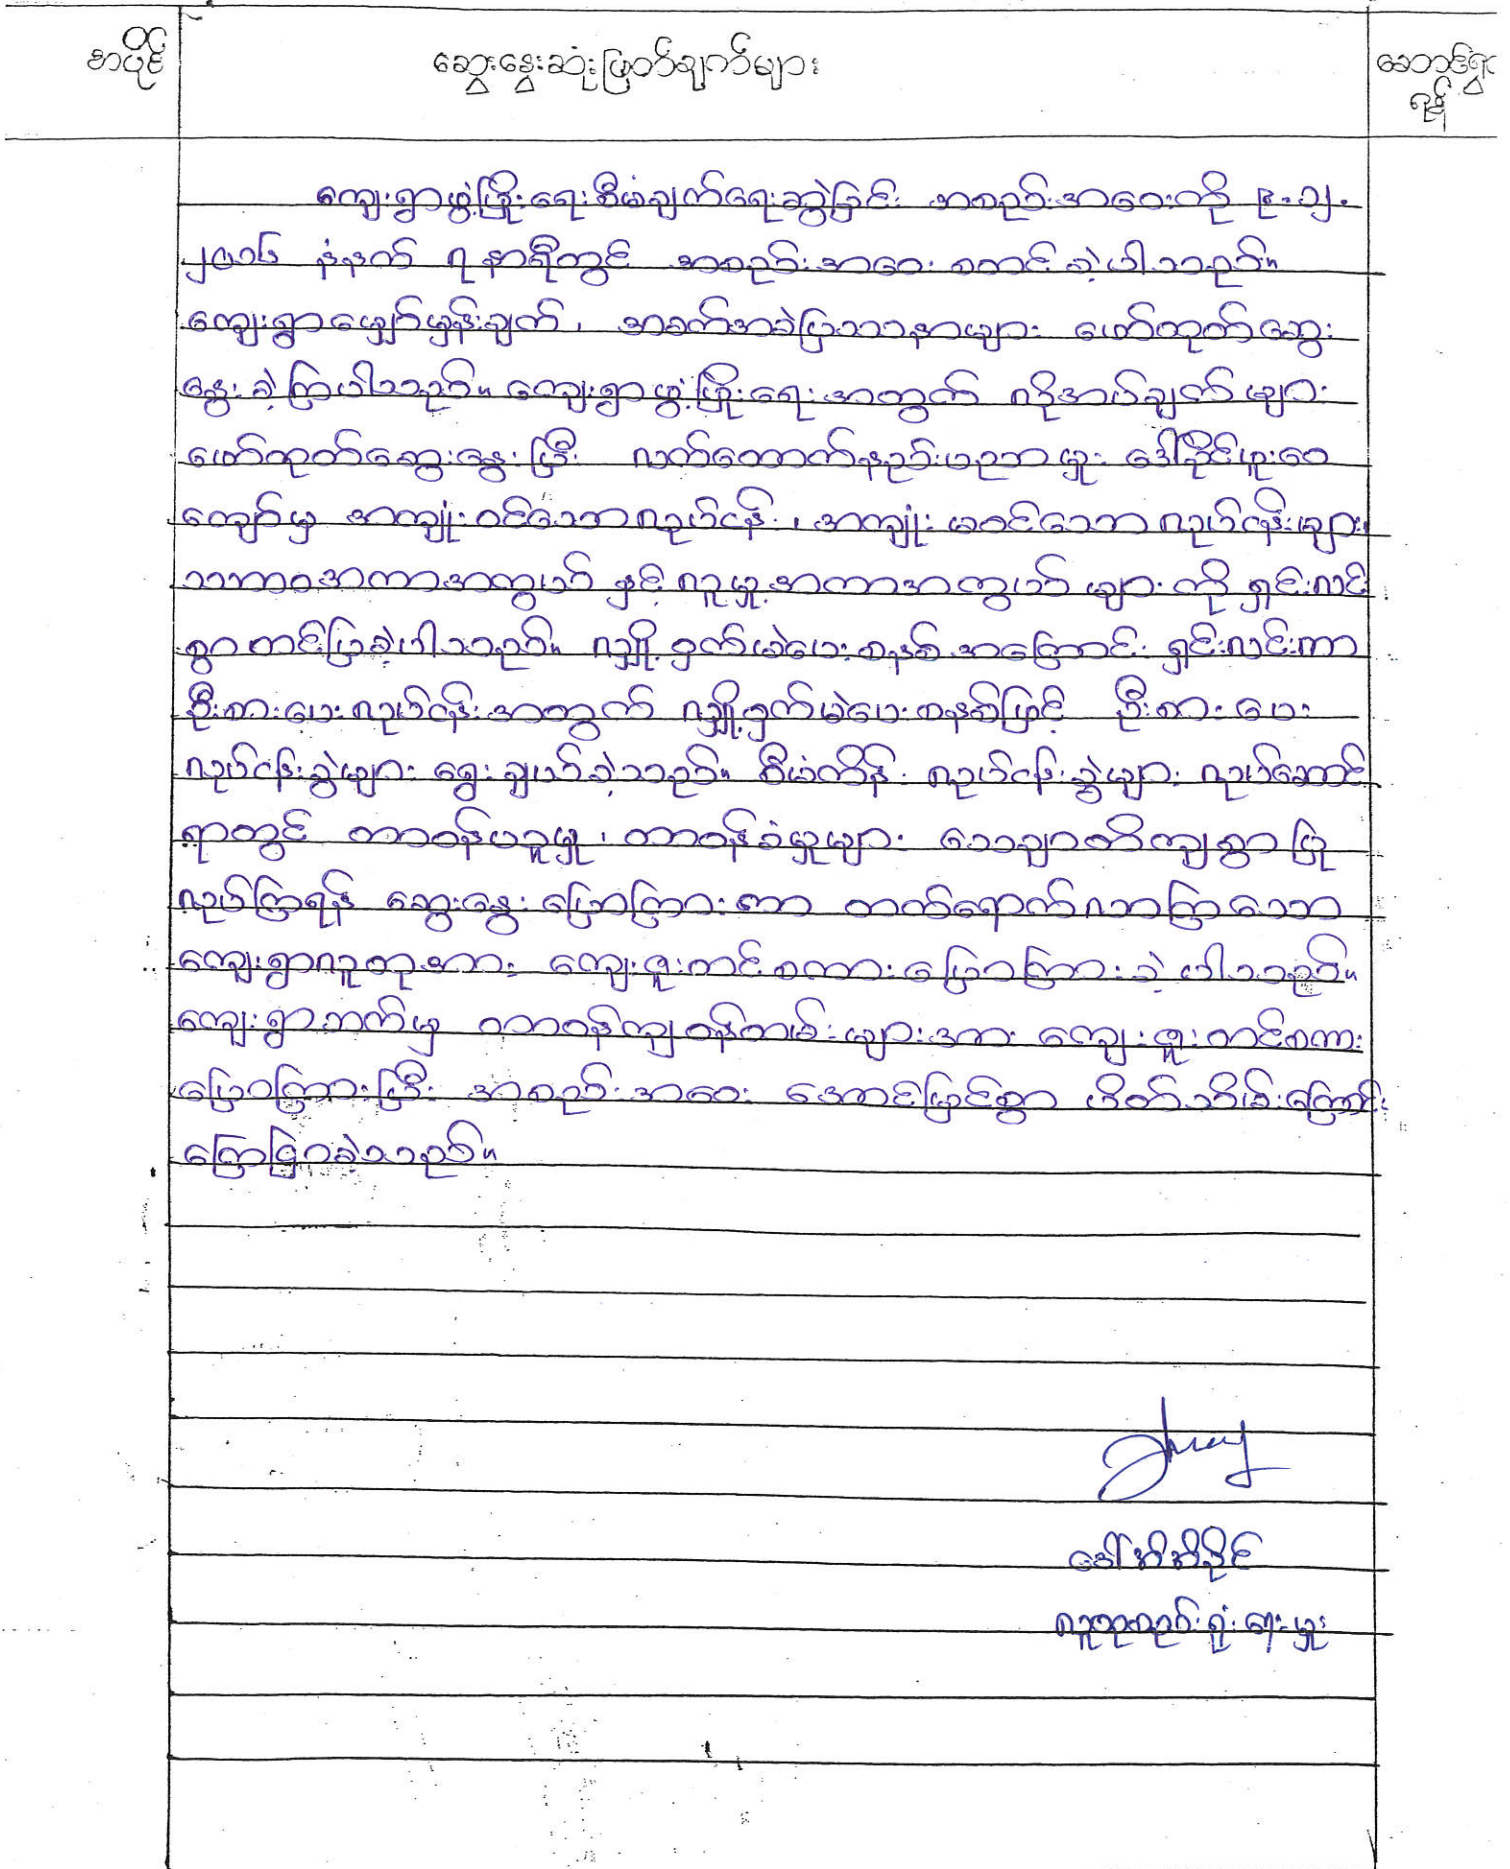 စာပိုဒ်
ဆွေးနွေးဆုံးဖြတ်ချက်များ
ဆောင်ရွက်
ရန်
ကျေးရွာဖွံ့ဖြိုးရေးစီမံချက်ရေးဆွဲခြင်း အစည်းအဝေးကို ၉.၁၂.
၂၀၁၆ နံနက် ၇ နာရီတွင် အစည်းအဝေး စတင်ခဲ့ပါသည်။
ကျေးရွာမျှော်မှန်းချက်၊ အခက်အခဲပြဿနာများ ဖော်ထုတ်ဆွေး
နွေးခဲ့ကြပါသည်။ ကျေးရွာဖွံ့ဖြိုးရေးအတွက် လိုအပ်ချက်များ
ဖော်ထုတ်ဆွေးနွေးပြီး လက်ထောက်နည်းပညာမှူး ဒေါ်ခိုင်ဖူးဝေ
ကျော်မှ အကျုံးဝင်သောလုပ်ငန်း၊ အကျုံးမဝင်သောလုပ်ငန်းများ၊
သဘာဝအကာအကွယ် နှင့် လူမှုအကာအကွယ် များကို ရှင်းလင်း
စွာတင်ပြခဲ့ပါသည်။ လျှို့ဝှက်မဲပေးစနစ်အကြောင်း ရှင်းလင်းကာ
ဦးစားပေးလုပ်ငန်းအတွက် လျှို့ဝှက်မဲပေးစနစ်ဖြင့် ဦးစားပေး
လုပ်ငန်းခွဲများ ရွေးချယ်ခဲ့သည်။ စီမံကိန်း လုပ်ငန်းခွဲများ လုပ်ဆောင်
ရာတွင် တာဝန်ယူမှု၊ တာဝန်ခံမှုများ သေချာတိကျစွာ ပြု
လုပ်ကြရန် ဆွေးနွေးပြောကြားကာ တက်ရောက်လာကြသော
ကျေးရွာလူထုအား ကျေးဇူးတင်စကားပြောကြားခဲ့ပါသည်။
ကျေးရွာဘက်မှ တာဝန်ကျဝန်ထမ်းများအား ကျေးဇူးတင်စကား
ပြောကြားပြီး အစည်းအဝေး အောင်မြင်စွာ ပိတ်သိမ်းကြောင်း
ကြေငြာခဲ့သည်။
ဒေါ်အိအိခိုင်
လူထုစည်းရုံးရေးမှူး